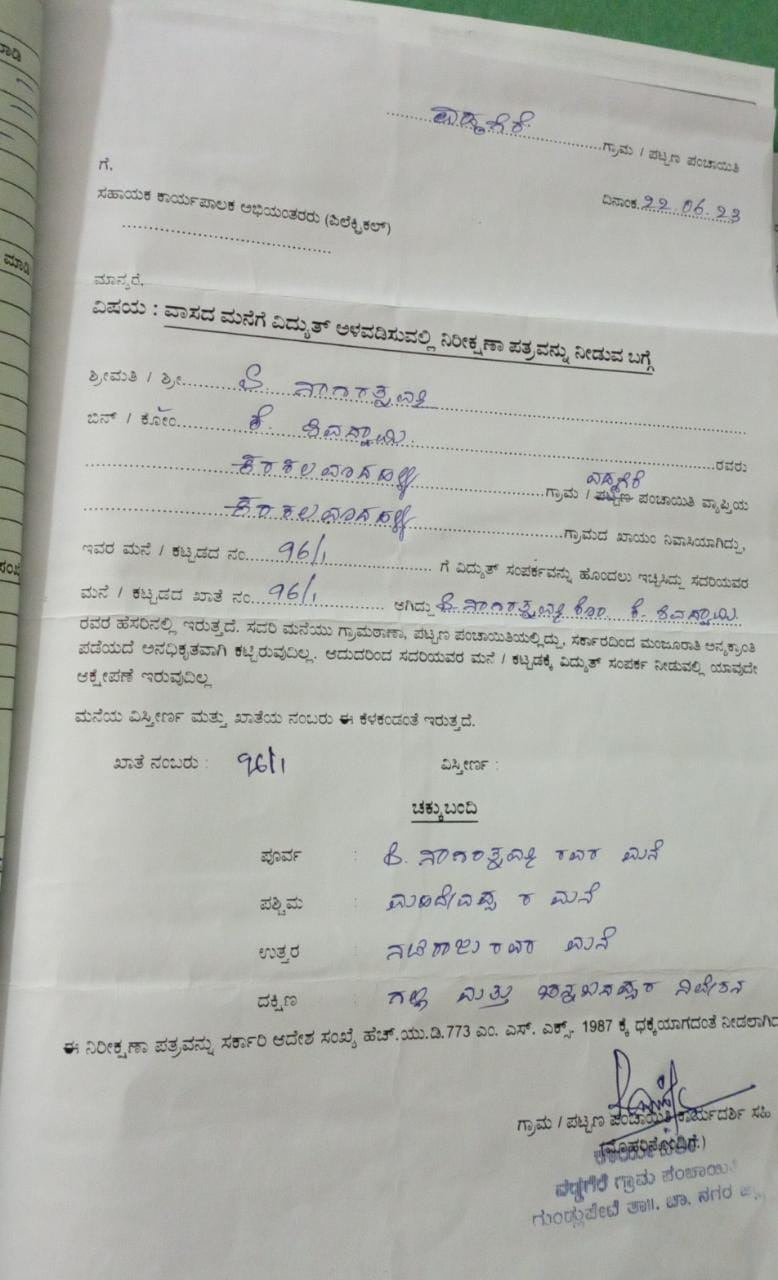 ವಡ್ಡಗೆರೆ ಗ್ರಾಮ / ಪಟ್ಟಣ ಪಂಚಾಯಿತಿ
ಗೆ,
ದಿನಾಂಕ 22.06.23
ಸಹಾಯಕ ಕಾರ್ಯಪಾಲಕ ಅಭಿಯಂತರರು (ಎಲೆಕ್ಟ್ರಿಕಲ್)
ಮಾನ್ಯರೆ,
ವಿಷಯ : ವಾಸದ ಮನೆಗೆ ವಿದ್ಯುತ್ ಅಳವಡಿಸುವಲ್ಲಿ ನಿರೀಕ್ಷಣಾ ಪತ್ರವನ್ನು ನೀಡುವ ಬಗ್ಗೆ
ಶ್ರೀಮತಿ / ಶ್ರೀ ನಾಗರತ್ನಮ್ಮ
ಬಿನ್ / ಕೋಂ ಕೆ. ಶಿವಸ್ವಾಮಿ ರವರು
ಗ್ರಾಮ / ಪಟ್ಟಣ ವಡ್ಡಗೆರೆ ಪಂಚಾಯಿತಿ ವ್ಯಾಪ್ತಿಯ
ಗ್ರಾಮದ ಖಾಯಂ ನಿವಾಸಿಯಾಗಿದ್ದು,
ಇವರ ಮನೆ / ಕಟ್ಟಡದ ನಂ. 96/1 ಗೆ ವಿದ್ಯುತ್ ಸಂಪರ್ಕವನ್ನು ಹೊಂದಲು ಇಚ್ಛಿಸಿದ್ದು ಸದರಿಯವರ
ಮನೆ / ಕಟ್ಟಡದ ಖಾತೆ ನಂ. 96/1 ಆಗಿದ್ದು ನಾಗರತ್ನಮ್ಮ ಕೋಂ ಕೆ. ಶಿವಸ್ವಾಮಿ
ರವರ ಹೆಸರಿನಲ್ಲಿ ಇರುತ್ತದೆ. ಸದರಿ ಮನೆಯು ಗ್ರಾಮಠಾಣಾ, ಪಟ್ಟಣ ಪಂಚಾಯಿತಿಯಲ್ಲಿದ್ದು, ಸರ್ಕಾರದಿಂದ ಮಂಜೂರಾತಿ ಅನ್ಯಕ್ರಾಂತಿ
ಪಡೆಯದೆ ಅನಧಿಕೃತವಾಗಿ ಕಟ್ಟಿರುವುದಿಲ್ಲ. ಆದುದರಿಂದ ಸದರಿಯವರ ಮನೆ / ಕಟ್ಟಡಕ್ಕೆ ವಿದ್ಯುತ್ ಸಂಪರ್ಕ ನೀಡುವಲ್ಲಿ ಯಾವುದೇ
ಆಕ್ಷೇಪಣೆ ಇರುವುದಿಲ್ಲ
ಮನೆಯ ವಿಸ್ತೀರ್ಣ ಮತ್ತು ಖಾತೆಯ ನಂಬರು ಈ ಕೆಳಕಂಡಂತೆ ಇರುತ್ತದೆ.
ಖಾತೆ ನಂಬರು : 96/1 ವಿಸ್ತೀರ್ಣ :
ಚಕ್ಕುಬಂದಿ
ಪೂರ್ವ : ನಾಗರತ್ನಮ್ಮ ರವರ ಮನೆ
ಪಶ್ಚಿಮ : ಮಹದೇವಪ್ಪ ರ ಮನೆ
ಉತ್ತರ : ನಟರಾಜು ರವರ ಮನೆ
ದಕ್ಷಿಣ : ಗಲ್ಲಿ ಮತ್ತು ನಿವೇಶನ
ಈ ನಿರೀಕ್ಷಣಾ ಪತ್ರವನ್ನು ಸರ್ಕಾರಿ ಆದೇಶ ಸಂಖ್ಯೆ ಹೆಚ್.ಯು.ಡಿ.773 ಎಂ. ಎಸ್. ಎಕ್ಸ್. 1987 ಕ್ಕೆ ಧಕ್ಕೆಯಾಗದಂತೆ ನೀಡಲಾಗಿದ
ಗ್ರಾಮ / ಪಟ್ಟಣ ಪಂಚಾಯಿತಿ ಕಾರ್ಯದರ್ಶಿ ಸಹಿ
(ಮೊಹರಿನೊಂದಿಗೆ.)
ವಡ್ಡಗೆರೆ ಗ್ರಾಮ ಪಂಚಾಯಿತಿ
ಗುಂಡ್ಲುಪೇಟೆ ತಾ॥. ಚಾ. ನಗರ